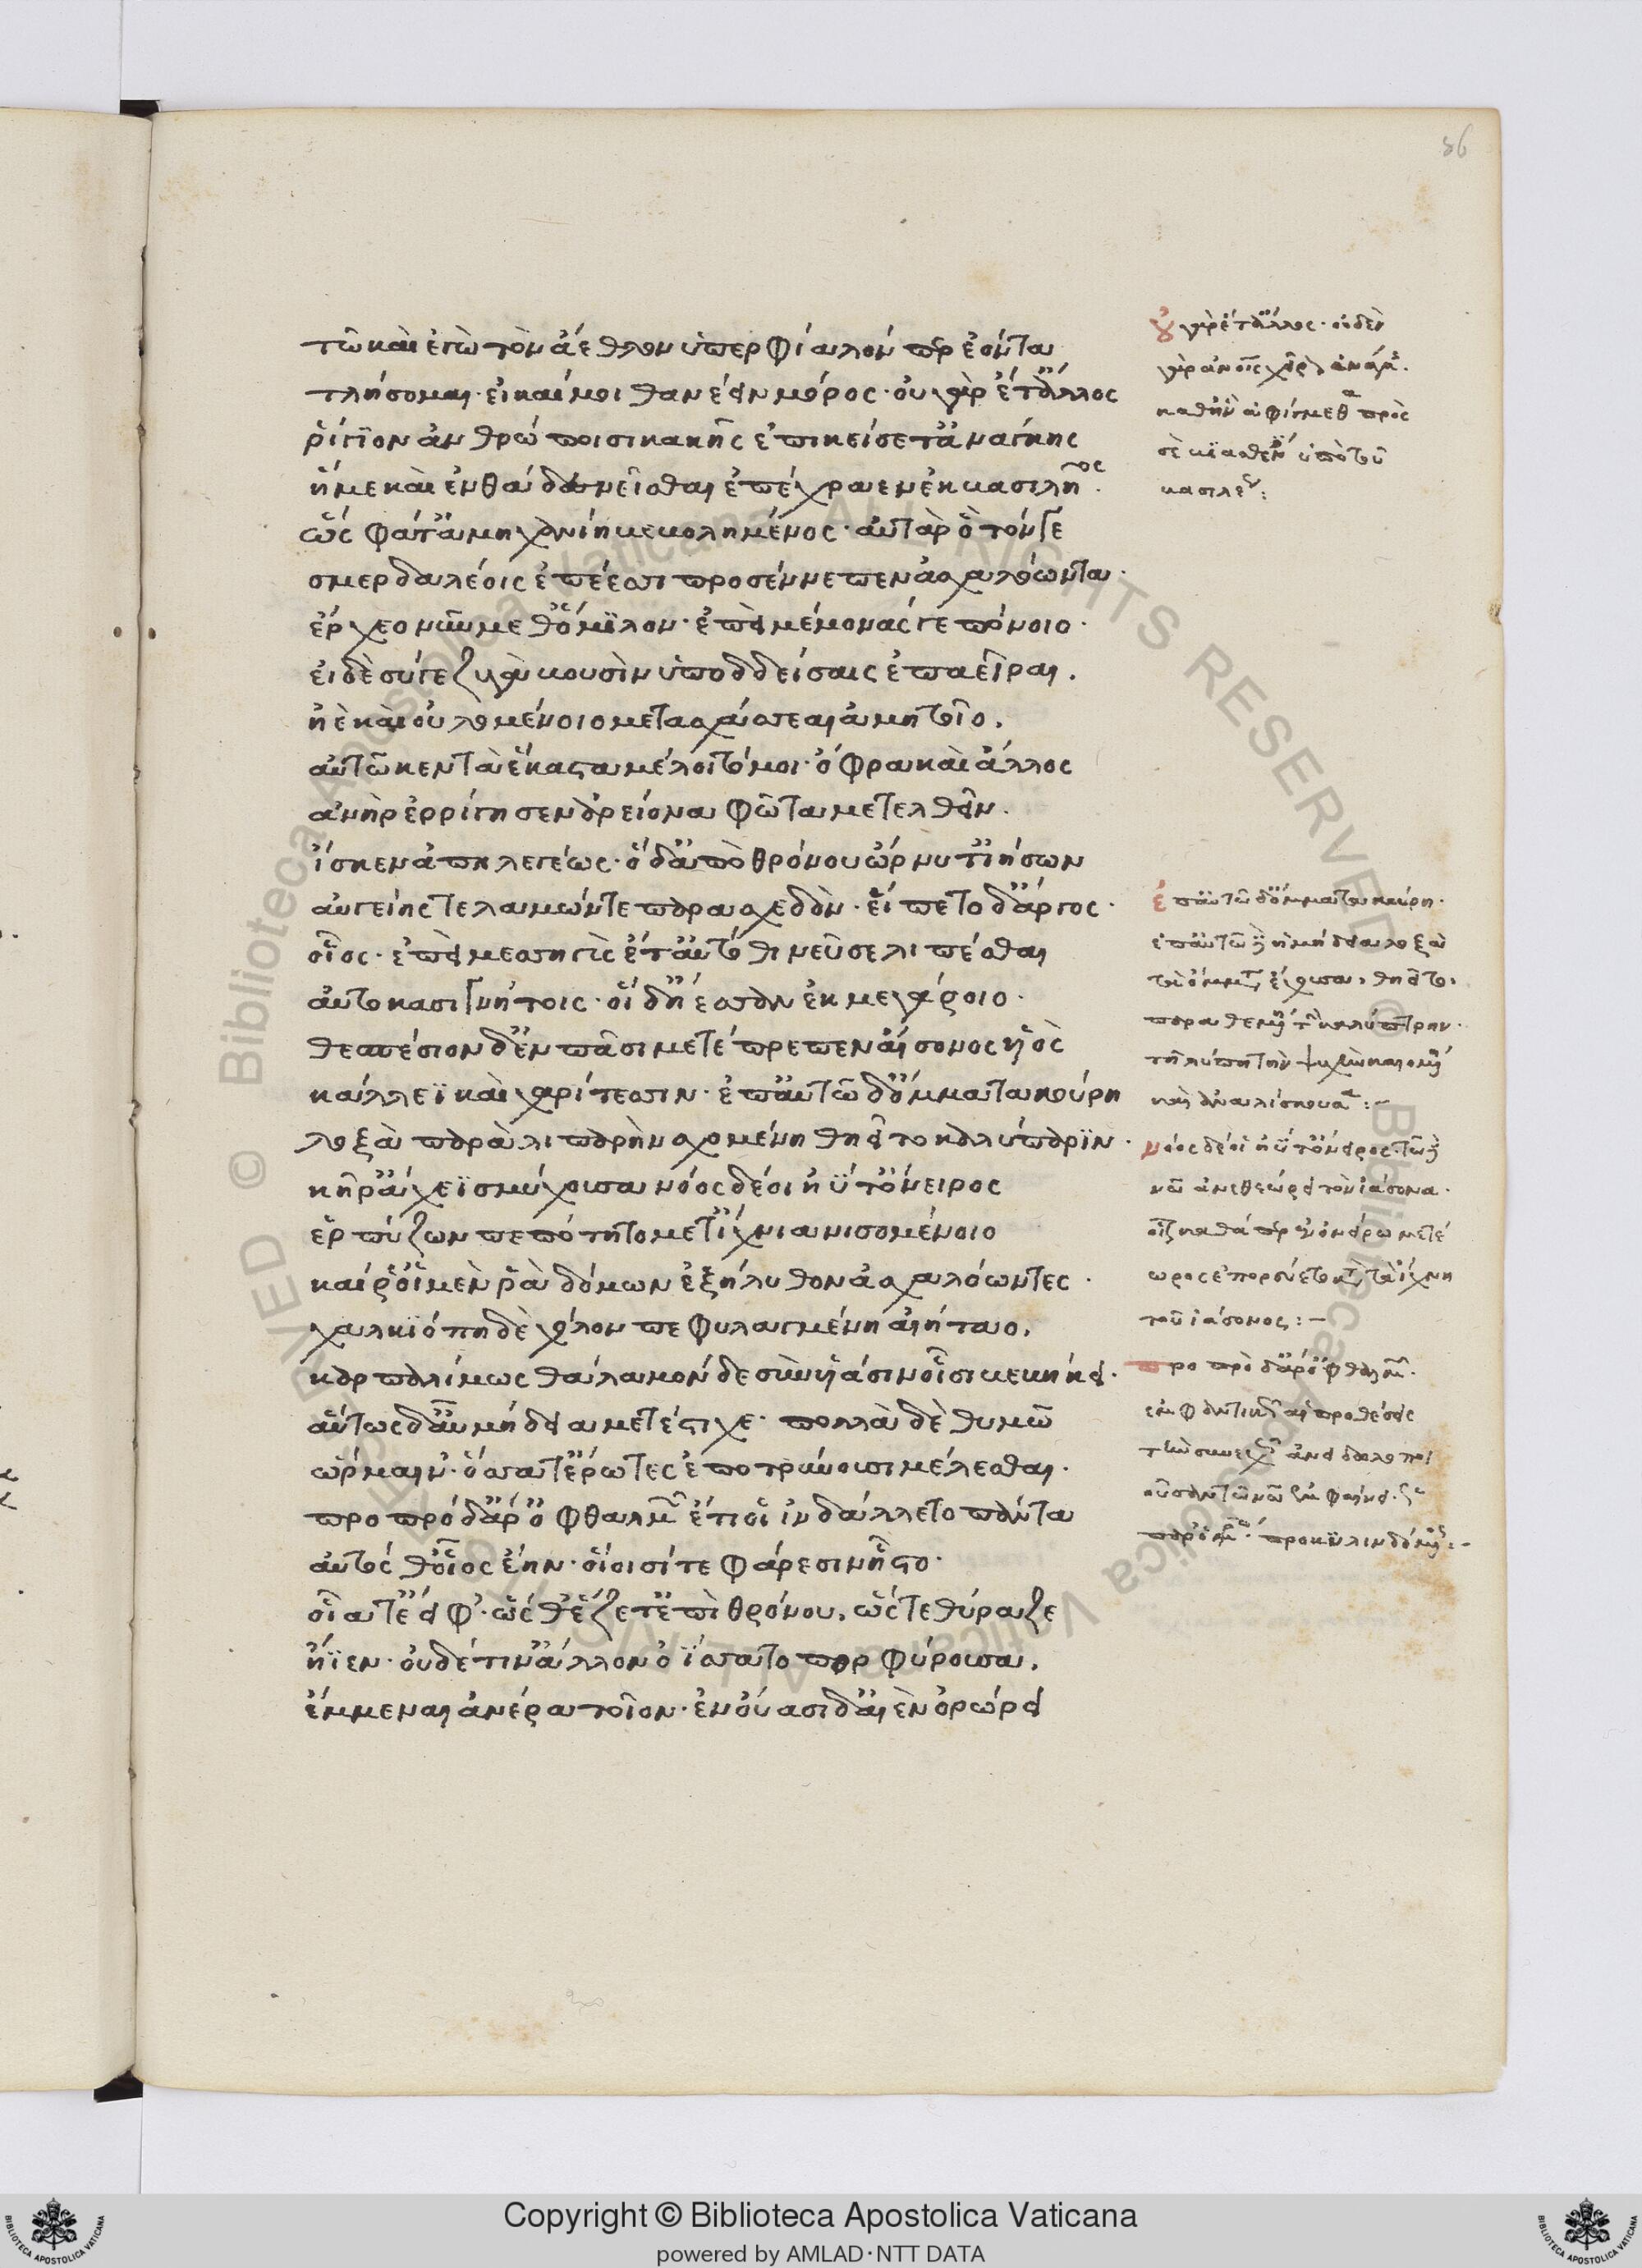 56
τῶ καὶ ἐγὼ τὸν ἄεθλον ὑπερφίαλόν περ ἐόντα
τλήσομαι· εἰ καί μοι θανέειν μόρος· οὐ γὰρ ἔτ' ἄλλος
ῥίγιον ἀνθρώποισι κακῆς ἐπικείσετ' ἀνάγκης
ἥ με καὶ ἐνθάδε νεῖσθαι ἐπέχραεν ἐκ βασιλῆος·
ὣς φάτ' ἀμηχανίη βεβολημένος· αὐτὰρ ὃ τόνγε
σμερδαλέοις ἐπέεσσι προσέννεπεν ἀσχαλόωντα·
ἔρχεο νῦν μεθ' ὅμιλον· ἐπεὶ μέμονάς γε πόνοιο·
εἰ δὲ σύγε ζυγὰ βουσὶν ὑποδδείσαις ἐπαεῖραι.
ἠὲ καὶ οὐλομένοιο μεταχάσσεαι ἀμήτοιο.
αὐτῶ κεν τὰ ἕκαστα μέλοιτό μοι· ὄφρα καὶ ἄλλος
ἀνὴρ ἐρρίγησεν ἀρείονα φῶτα μετελθεῖν.
ἴσκεν ἀπηλεγέως· ὁ δ' ἀπὸ θρόνου ὤρνυτ' ἰήσων
αὐγείης τελαμών τε παρασχεδόν· εἵπετο δ' ἄργος·
οἶος· ἐπεὶ μεσσηγὺς ἔτ' αὐτόθι νεῦσε λιπέσθαι
αὐτοκασιγνήτοις· οἱ δ' ἤεσαν ἐκ μεγάροιο·
θεσπέσιον δ' ἐν πᾶσι μετέπρεπεν αἴσονος υἱὸς
κάλλεϊ καὶ χαρίτεσσιν· ἐπ' αὐτῶ δ' ὄμματα κούρη
λοξὰ παρὰ λιπαρὴν σχομένη θηεῖτο καλύπτρην·
κῆρ ἄχεϊ σμύχουσα νόος δέ οἱ ἠΰτ' ὄνειρος
ἑρπύζων πεπότητο μετ' ἴχνια νισομένοιο
καί ῥ' οἱ μὲν ῥὰ δόμων ἐξήλυθον ἀσχαλόωντες·
χαλκιόπη δὲ χόλον πεφυλαγμένη αἰήταο.
καρπαλίμως θάλαμον δὲ σὺν υἱάσιν οἷσι βεβήκει·
αὔτως δ' αὖ μήδεια μετέστιχε· πολλὰ δὲ θυμῶ
ὥρμαιν'· ὅσσα τ' ἔρωτες ἐποτρύνουσι μέλεσθαι.
προπρὸ δ' ἄρ' ὀφθαλμῶν ἔτι οἱ ἰνδάλλετο πάντα
αὐτός θ' οἷος ἔην· οἵοισί τε φάρεσιν ἧστο·
οἷά τ' ἔειφ'· ὥς θ' ἕζετ' ἐπὶ θρόνου. ὥς τε θύραζε
ἤϊεν· οὐδέ τιν' ἄλλον ὀΐσσατο πορφύρουσα.
ἔμμεναι ἀνέρα τοῖον· ἐν οὔασι δ' αἰὲν ὀρώρει
οὐ γὰρ ἔτ' ἄλλος· οὐδὲν
γὰρ ἀν οἷς χεῖρον ἀνάγκ.
καθ' ἣν ἀφίγμεθα πρὸς
σὲ βιασθέν ὑπὸ τοῦ
βασιλέως:
ἐπ' αὐτῶ δ' ὄμματα κούρη·
ἐπ' αὐτῶ δὲ ἡ μήδεια λοξὰ
τὰ ὄμματα ἔχουσα, θηεῖτο.
παραθεμένη τὴν καλύπτρην.
τῆ λύπη τὴν ψυχὴν καιομένη
καὶ ἀναλίσκουσα:–
νόος δέ οἱ ἠΰτ' ὄνειρος· τῶ δὲ
νῶ ἀνεθεώρει τὸν ἰάσονα·
καθάπερ ἐν ὀνείρω μετέ
ωρος ἐπορεύετο κατὰ τὰ ἴχνη
τοῦ ἰάσονος:–
προπρὸ δ' ἄρ' ὀφθαλμῶν·
ἐμφαντικαὶ αἱ προθέσεις
τὴν συνεχῆ ἀνειδωλοποι